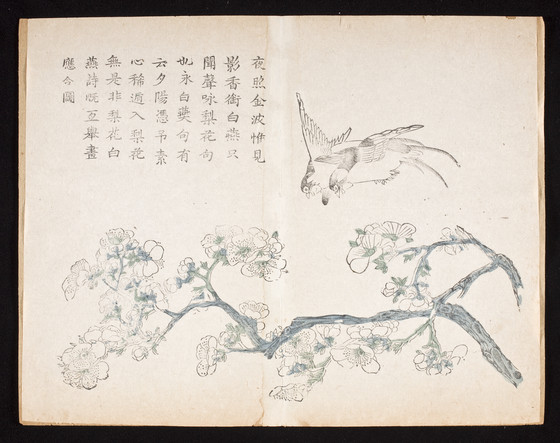 夜照金波惟見
影香銜白燕只
聞聲咏梨花句
也永白燕句有
云夕陽憑吊素
心稀遁入梨花
無是非梨花白
燕詩既互舉畫
應合圖